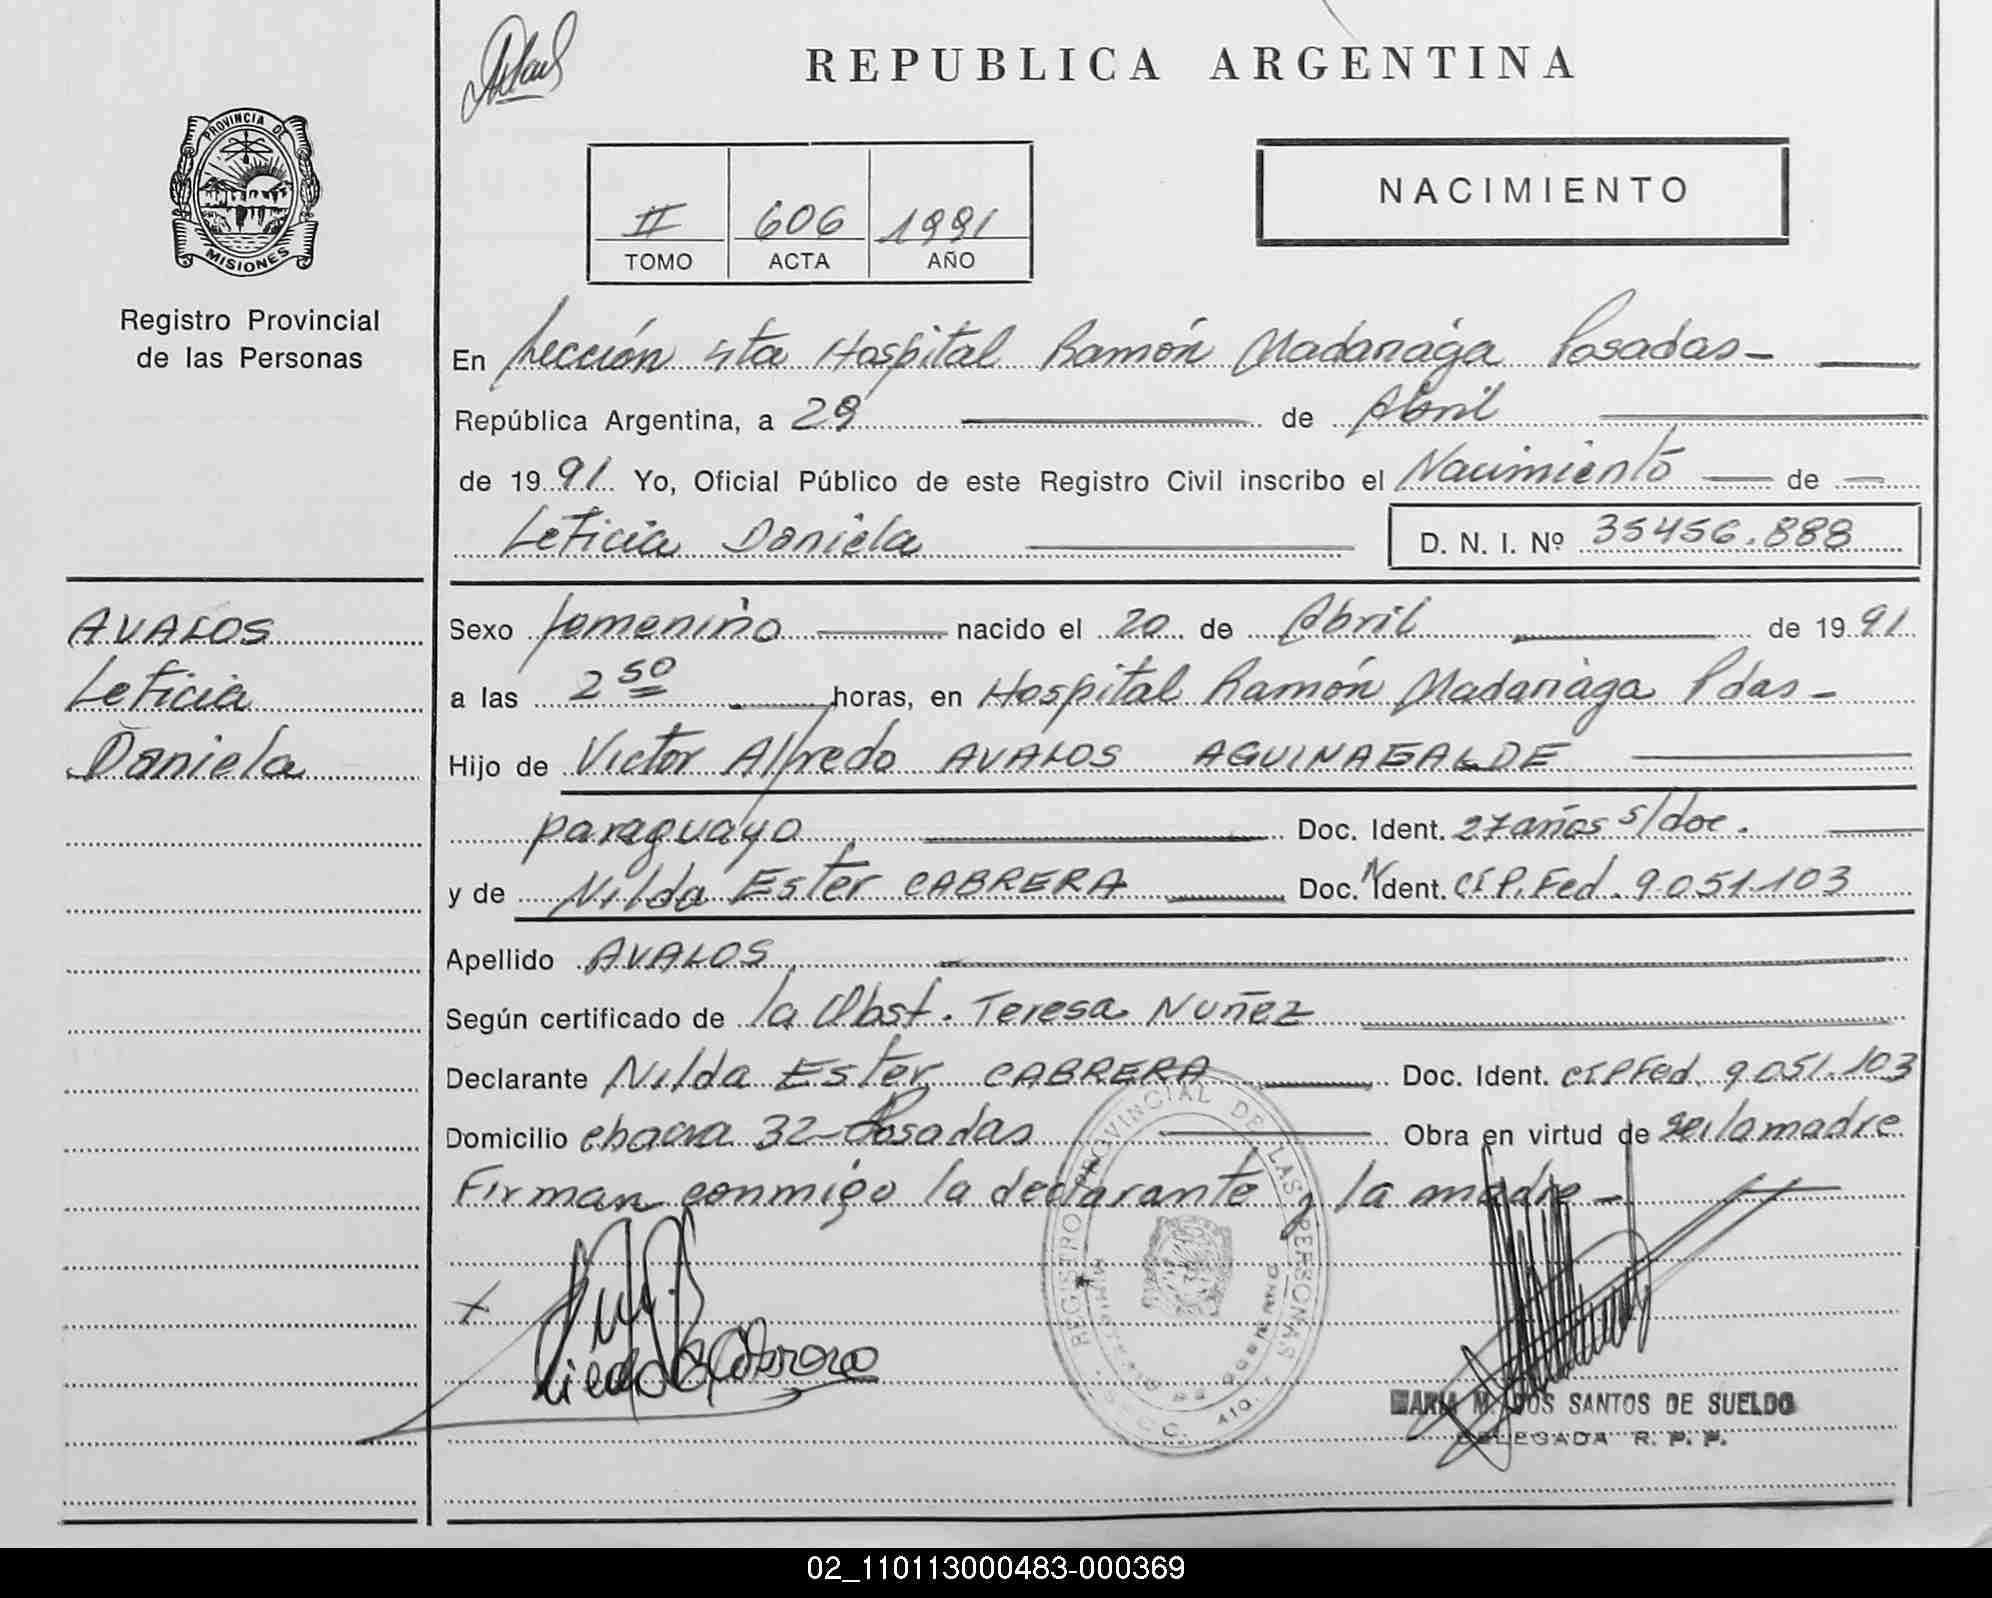 REPUBLICA ARGENTINA
PROVINCIA DE
MISIONES
Registro Provincial
de las Personas
II 606 1991
TOMO ACTA AÑO
NACIMIENTO
En Sección 4ta Hospital Ramón Madariaga Posadas-
República Argentina, a 29 de Abril
de 1991 Yo, Oficial Público de este Registro Civil inscribo el Nacimiento de
Leticia Daniela D. N. I. Nº 35456.888
AVALOS
Leticia
Daniela
Sexo femenino nacido el 20 de Abril de 1991
a las 2 50 horas, en Hospital Ramón Madariaga Pdas-
Hijo de Victor Alfredo AVALOS AGUINAGALDE
paraguayo Doc. Ident. 27 años s/doc.
y de Nilda Ester CABRERA Doc. Ident. CIP.Fed. 9.051.103
Apellido AVALOS
Según certificado de la Obst. Teresa Nuñez
Declarante Nilda Ester CABRERA Doc. Ident. CIPFed. 9.051.103
Domicilio chacra 32-Posadas Obra en virtud de ser la madre
Firman conmigo la declarante y la madre-
REGISTRO PROVINCIAL DE LAS PERSONAS
MINISTERIO DE GOBIERNO
MARIA M. DOS SANTOS DE SUELDO
DELEGADA R. P. P.
02_110113000483-000369